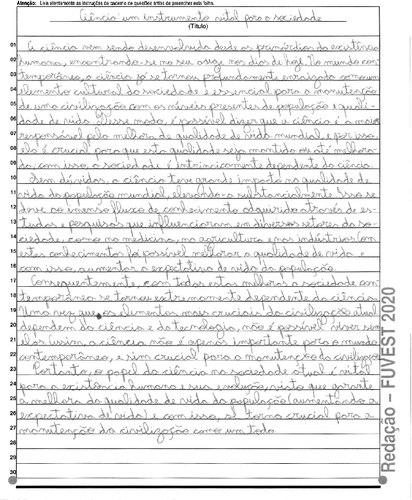 Atenção: Leia atentamente as instruções do caderno de questões antes de preencher esta folha.
Ciência: um instrumento vital para a sociedade
(Título)
01 A ciência vem sendo desenvolvida desde os primórdios da existência
02 humana, encontrando-se no seu auge nos dias de hoje. No mundo con-
03 temporâneo, a ciência já se tornou profundamente enraizada como um
04 elemento cultural da sociedade e essencial para a manutenção
05 de uma civilização com os níveis presentes de população e quali-
06 dade de vida. Desse modo, é possível dizer que a ciência é a maior
07 responsável pela melhora da qualidade de vida mundial, e por isso,
08 ela é crucial para que esta qualidade seja mantida ou até melhora-
09 da, com isso, a sociedade é intrinsicamente dependente da ciência.
10 Sem dúvidas, a ciência teve grande impacto na qualidade de
11 vida da população mundial, elevando-a substancialmente. Isso se
12 deve ao imenso fluxo de conhecimento adquirido através de es-
13 tudos e pesquisas que influenciaram em diversos setores da so-
14 ciedade, como na medicina, na agricultura e nas indústrias. Com
15 estes conhecimentos, foi possível melhorar a qualidade de vida e
16 com isso, aumentar a expectativa de vida da população.
17 Consequentemente, com todas estas melhoras, a sociedade con-
18 temporânea se tornou extremamente dependente da ciência.
19 Uma vez que os elementos mais cruciais da civilização atual
20 dependem da ciência e da tecnologia, não é possível viver sem
21 elas. Assim, a ciência não é apenas importante para o mundo
22 contemporâneo, e sim crucial para a manutenção da civilização.
23 Portanto, o papel da ciência na sociedade atual é vital
24 para a existência humana e sua evolução, visto que garante
25 a melhora da qualidade de vida da população (aumentando a
26 expectativa de vida) e com isso, se torna crucial para a
27 manutenção da civilização como um todo.
28
29
30
Redação – FUVEST 2020